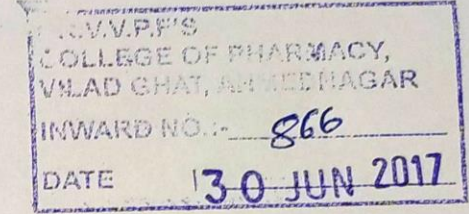 .V.V.P.F'S
COLLEGE OF PHARMACY,
VILAD GHAT, AHMEDNAGAR
INWARD NO.:- 866
DATE 30 JUN 2017